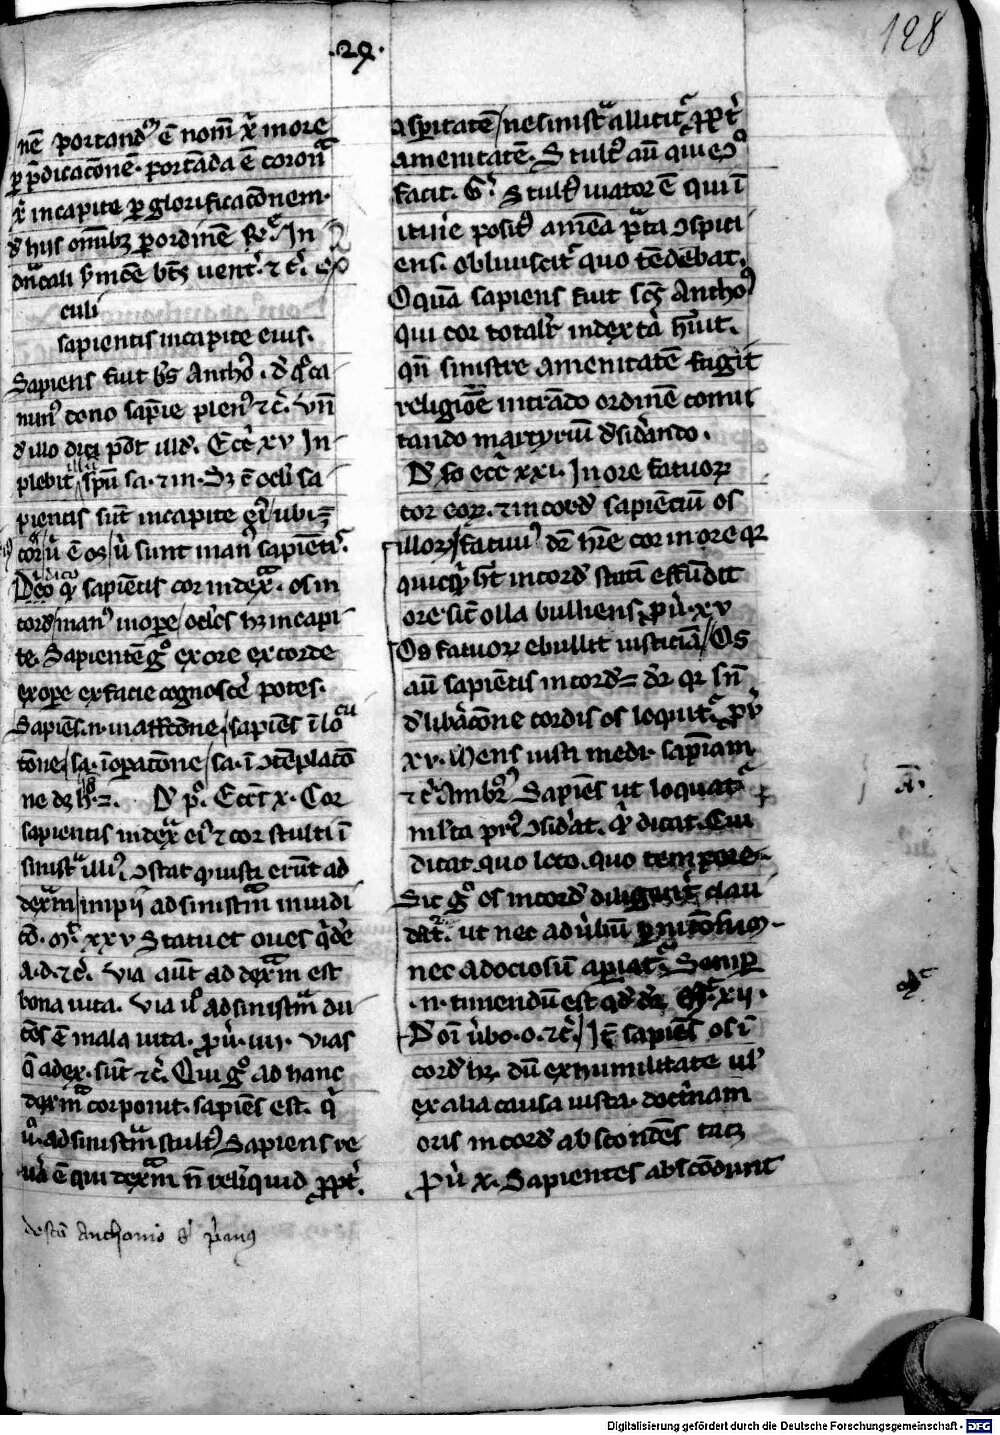 .29.
128
nē portandꝰ ē nom̄ x̄ in ore
ꝑ p̄dicacōnē. portāda ē corona
x̄ in capite ꝑ glorificacōnem.
d̄ hijs om̄ibꝫ ꝑ ordinē In
culi
sapientis in capite eius.
Sapiens fuit bt̄s Anthoꝰ. d̄
nunꝰ dono sapīe plenꝰ ⁊c̄. vn̄
d̄ illo dici pōt illd̄. Ecc̄ xv In
plebit illū sp̄u sa. ⁊ in.
pientis sūt in capite ubi
cor ē os sunt manꝰ sapientꝭ.
Dico sapiētis cor in dext̄a. os in
cord̄ / manꝰ in oꝑe / oc̄los hꝫ in capi
te. Sapientē gͦ ex ore ex corde
ex oꝑe ex facie cognosce᷑ potes.
Sapiēs .n. in affc̄one / sapiēs ī locu
tōne / sa. ī oꝑacōne / sa. ī ꝯtēplacō
ne D̄ pͦ. Ecc̄s x. Cor
sapientis in dext̄a eiꝰ ⁊ cor stulti ī
sinist̄a illiꝰ. ꝯstat qͥ iusti erūt ad
dext̄am / impij ad sinist̄am iudi
cij. mᵗ xxv Statuet oues q̄de
a. d. ⁊c̄. Via aūt ad dext̄am est
bona uita. Via ū ad sinist̄am du
cēs ē mala uita. ꝓū. iiij. vias
q̄ a dex. sūt ⁊c̄. Qui gͦ ad hanc
dext̄am cor ponit. sapiēs est. qͥ
ū. ad sinist̄am stultꝰ Sapiens re
uā ē qui dext̄am n̄ reliquid ꝓpt̄.
de sc̄o Anthonio s̄ p̄imus
asꝑitatē / ne sinist̄a allicit᷑ ꝓpt̄
amenitatē. Stultꝰ aū qui eͦ
facit. Gͬ. Stultꝰ uiator ē qui ī
itiīe positꝰ amēa p̄ta ꝯspici
ens. obliuiscit᷑ quo tēdebat.
O quā sapiens fuit sc̄s Anthoꝰ
qui cor totalit̄ in dext̄a hūit.
qn̄ sinistre amenitatē fugit
religiōē intrādo ordinē comu
tando martyriū d̄sid̄ando.
D̄ ecc̄ xxi. In ore fatuoꝝ
cor eoꝝ. ⁊ in cord̄ sapiēciū os
illoꝝ / fatuuꝰ d̄r hr̄e cor in ore qꝛ
quicqͥd h̄t in cord̄ statī effūdit
ore sic̄ olla bulliens. ꝓū. xv
Os fatuoꝝ ebullit iusticiā / Os
aū sapiētis in cord̄ d̄r qꝛ sn̄
d̄libacōne cordis os loquit᷑. ꝓū
xv. Mens iusti medi. sapīam
⁊c̄. Ambrꝰ Sapiēs ut loquat᷑
ml̄ta prꝰ ꝯsid̄at. qͥ dicat. Cui
dicat quo loco. quo tempore.
Sic gͦ os in cord̄ diligent̄ clau
dat᷑. ut nec ad ūbū
nec ad ociosū aꝑiat᷑. Semꝑ
.n. timendū est qd̄ d̄r. mᵗ. xii.
D̄ oī ūbo. o. ⁊c̄. / It̄ sapiēs os ī
cord̄ hꝫ. dū ex humilitate ul̓
ex alia causa iusta. doct̄nam
oris in cord̄ abscondēs tacꝫ
ꝓū x. Sapientes abscōdunt
Digitalisierung gefördert durch die Deutsche Forschungsgemeinschaft - DFG